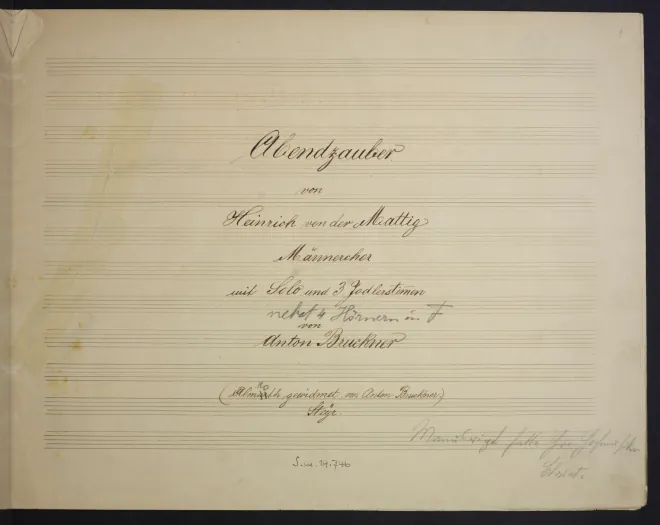 Abendzauber
von
Heinrich von der Mattig
Männerchor
mit Solo und 3 Jodlerstimen
nebst 4 Hörnern in F
von
Anton Bruckner
gewidmet von Anton Bruckner.)
Steyr.
Manuskript hatte
S.m. 19.746